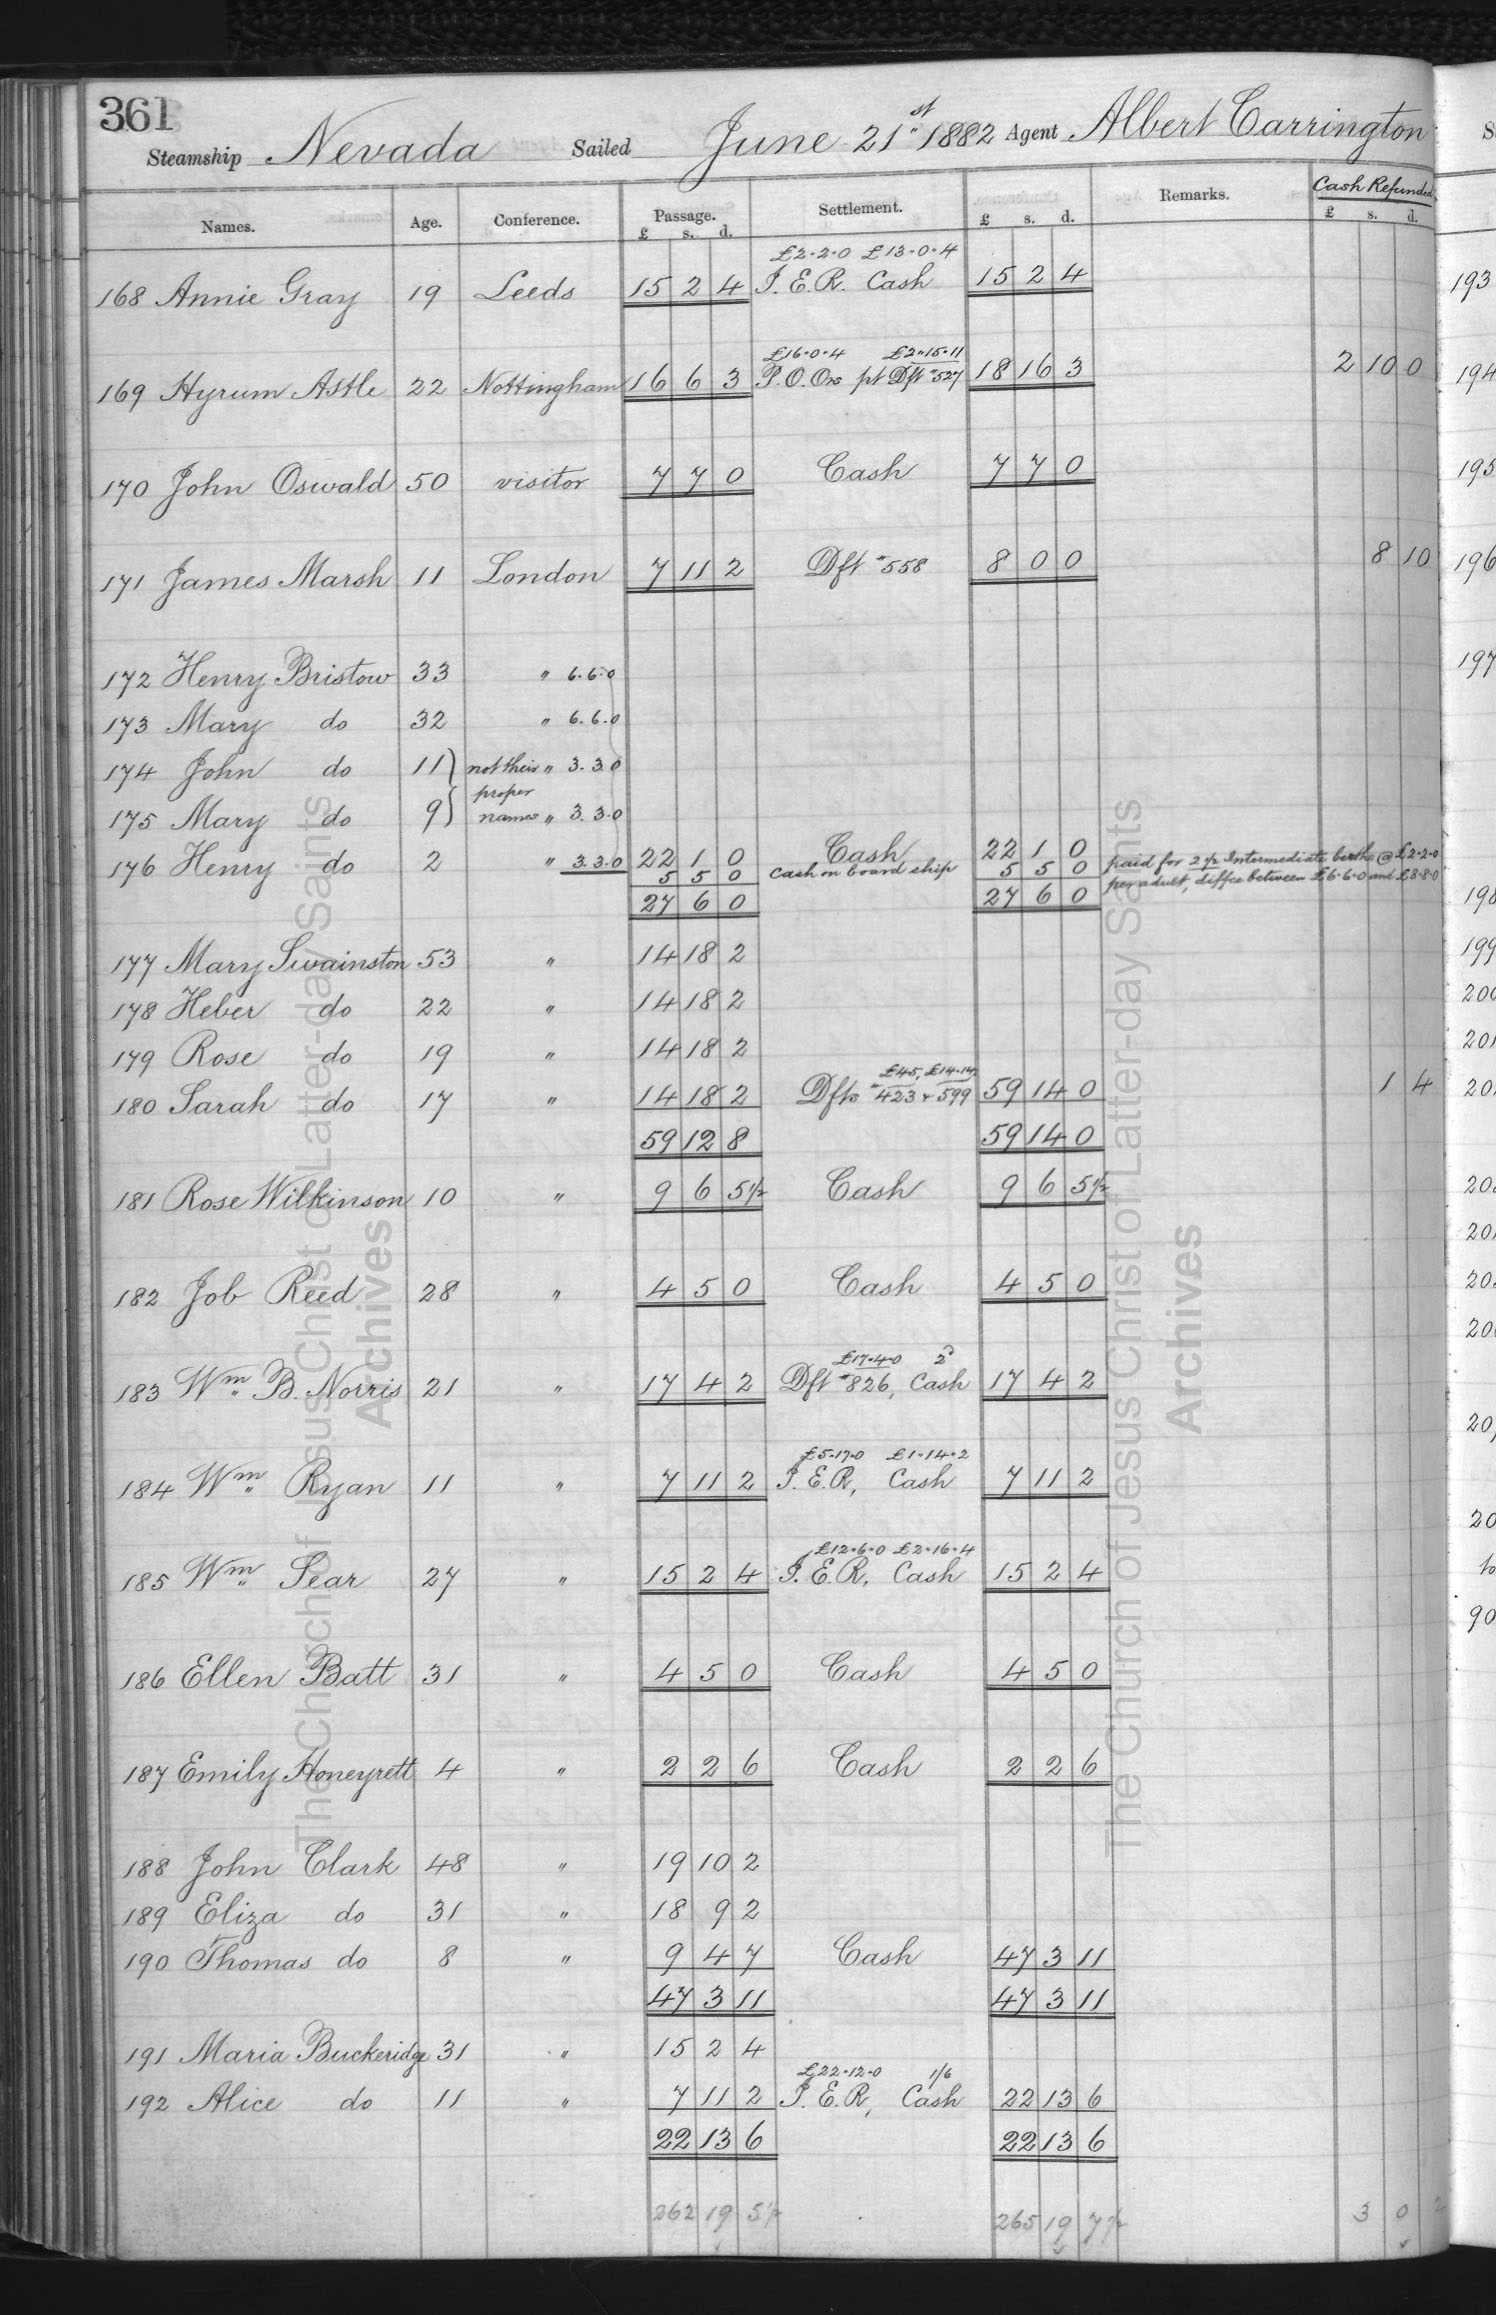 361
Steamship Nevada Sailed June 21st 1882 Agent Albert Carrington
Names. Age. Conference. Passage. £ s. d. Settlement. £ s. d. Remarks. Cash Refunded £ s. d.
£2-2-0 £13-0-4
168 Annie Gray 19 Leeds 15 2 4 P.E.R. Cash 15 2 4
£16-0-4 £2-15-11
169 Hyrum Astle 22 Nottingham 16 6 3 P.O.Os pt Dft "527 18 16 3 2 10 0
170 John Oswald 50 visitor 7 7 0 Cash 7 7 0
171 James Marsh 11 London 7 11 2 Dft "558 8 0 0 8 10
172 Henry Bristow 33 " 6.6.0
173 Mary do 32 " 6.6.0
174 John do 11 not their " 3.3.0
proper
175 Mary do 9 names " 3.3.0
176 Henry do 2 " 3.3.0 22 1 0 Cash 22 1 0 paid for 2 1/2 Intermediate berths @ £2-2-0
5 5 0 Cash on board ship 5 5 0 per adult, diffce between £6-6-0 and £8-8-0
27 6 0 27 6 0
177 Mary Swainston 53 " 14 18 2
178 Heber do 22 " 14 18 2
179 Rose do 19 " 14 18 2
£45, £14-14
180 Sarah do 17 " 14 18 2 Dfts "423 & 599 59 14 0 1 4
59 12 8 59 14 0
181 Rose Wilkinson 10 " 9 6 5 1/2 Cash 9 6 5 1/2
182 Job Reed 28 " 4 5 0 Cash 4 5 0
£17-4-0 2d
183 Wm B. Norris 21 " 17 4 2 Dft "826, Cash 17 4 2
£5-17-0 £1-14-2
184 Wm Ryan 11 " 7 11 2 P.E.R, Cash 7 11 2
£12-6-0 £2-16-4
185 Wm Sear 27 " 15 2 4 P.E.R, Cash 15 2 4
186 Ellen Batt 31 " 4 5 0 Cash 4 5 0
187 Emily Honeyrett 4 " 2 2 6 Cash 2 2 6
188 John Clark 48 " 19 10 2
189 Eliza do 31 " 18 9 2
190 Thomas do 8 " 9 4 7 Cash 47 3 11
47 3 11 47 3 11
191 Maria Buckeridge 31 " 15 2 4
£22-12-0 1/6
192 Alice do 11 " 7 11 2 P.E.R, Cash 22 13 6
22 13 6 22 13 6
262 19 5 1/2 265 19 7 1/2 3 0 2
The Church of Jesus Christ of Latter-day Saints
Archives
The Church of Jesus Christ of Latter-day Saints
Archives
193
194
195
196
197
198
199
200
201